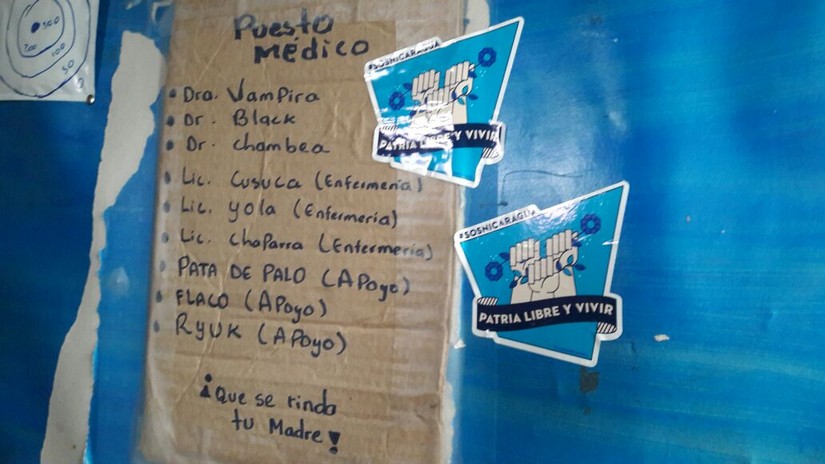 Puesto
Médico
Dra. Vampira
Dr. Black
Dr. Chambea
Lic. Cusuca (Enfermería)
Lic. Yola (Enfermería)
Lic. Chaparra (Enfermería)
PATA DE PALO (APoyo)
FLACO (APoyo)
RYUK (APoyo)
¡Que se rinda
tu Madre!
#SOSNICARAGUA
PATRIA LIBRE Y VIVIR
#SOSNICARAGUA
PATRIA LIBRE Y VIVIR
500
100
50